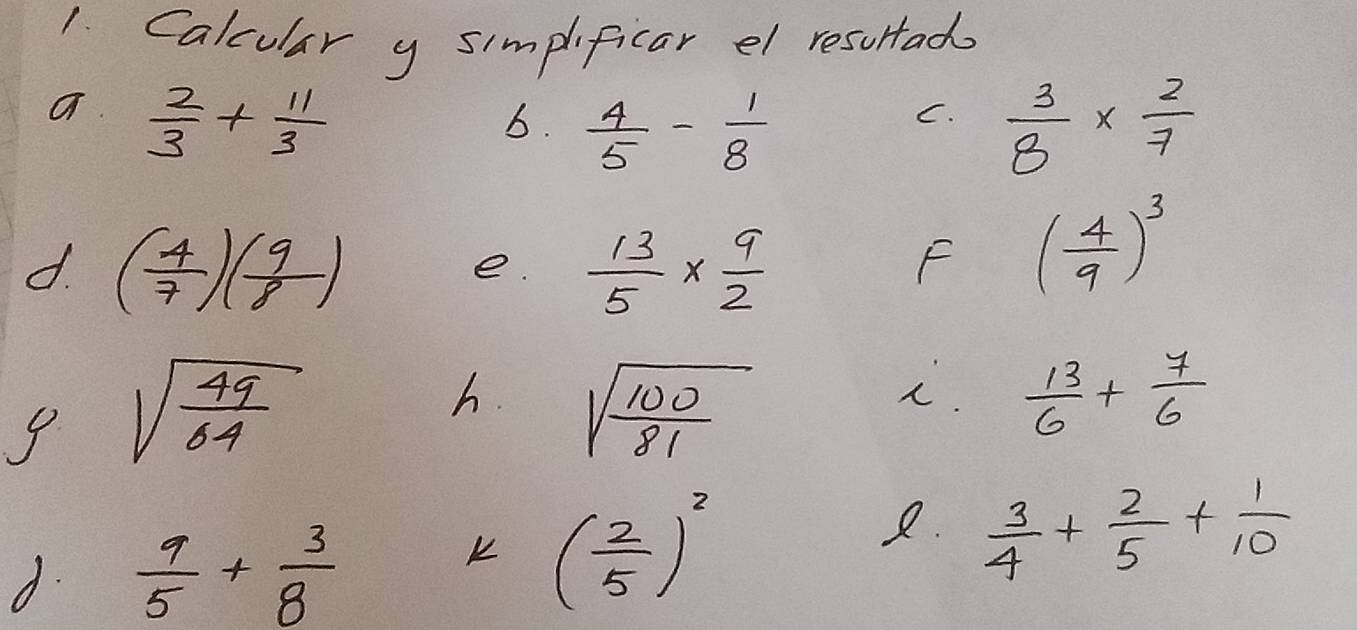 1. Calcular y simplificar el resultado
a. 2/3 + 11/3 b. 4/5 - 1/8 c. 3/8 x 2/7
d. (4/7)(9/8) e. 13/5 x 9/2 F (4/9)^3
g. √(49/64) h. √(100/81) i. 13/6 + 7/6
j. 9/5 + 3/8 K (2/5)^2 l. 3/4 + 2/5 + 1/10